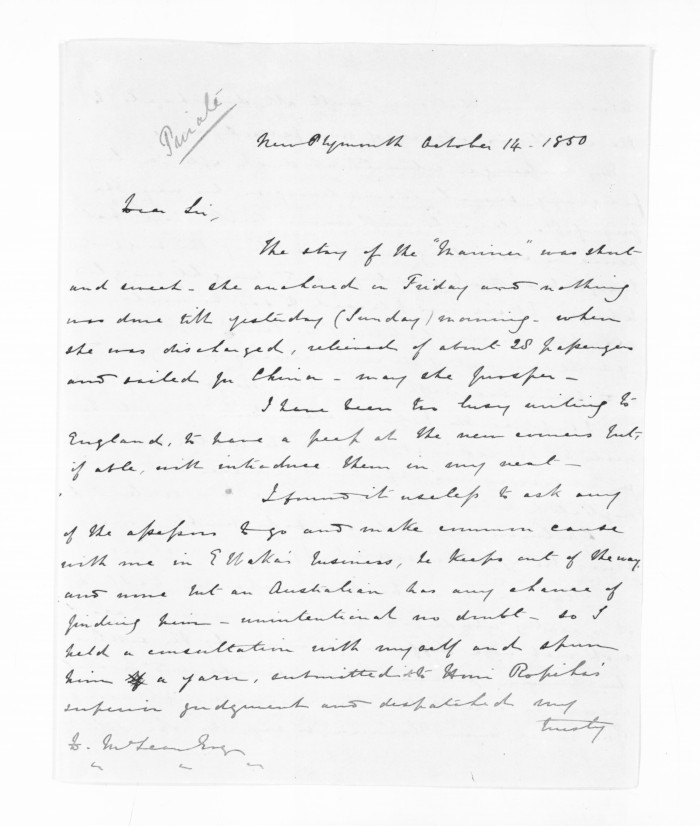 Private
New Plymouth October 14 - 1850
Dear Sir,
The stay of the "Mariner" was short
and sweet - she anchored on Friday and nothing
was done till yesterday (Sunday) morning - when
she was discharged, relieved of about 28 passengers
and sailed for China - may she prosper -
I have been too busy writing to
England, to have a peep at the new comers but,
if able, will introduce them in my next -
I found it useless to ask any
of the assessors to go and make common cause
with me in E Waka's business, he keeps out of the way
and none but an Australian has any chance of
finding him - unintentional no doubt - so I
held a consultation with myself and spun
him a yarn, submitted it to Honi Ropiha's
superior judgment and despatched my
trusty
D. McLean Esqr
" " "